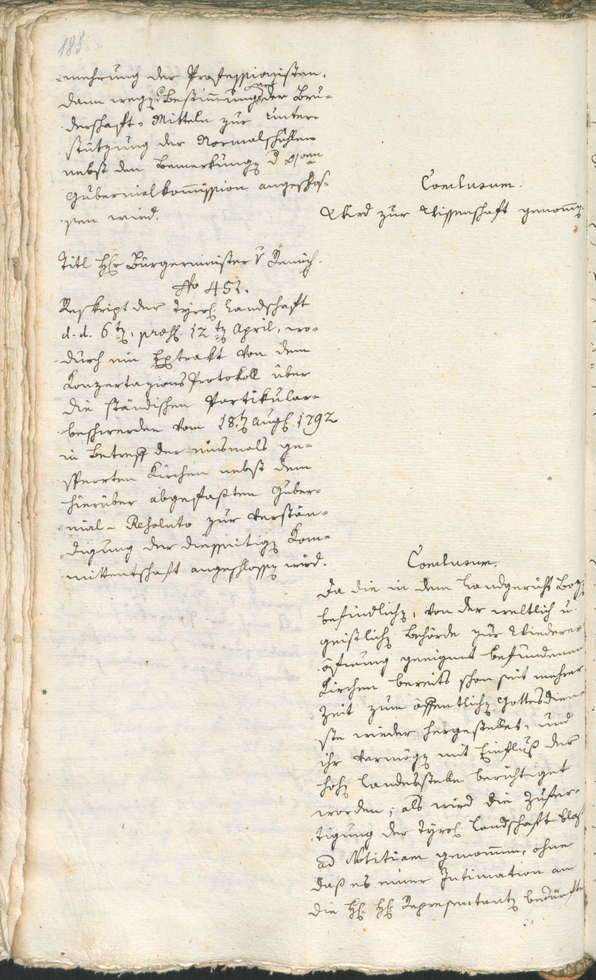 185
-mehrung der Professionisten,
dann wegen Bestimmung der Bru-
derschafts-Mitteln zur Unter-
stützung der Normalschulen
nebst den Bemerkungen d
Gubernialkommission angeschlos-
sen wird.
Conclusum.
Wird zur Wissenschaft genommen.
Titl Hr Bürgermeister v
No 451.
Reskript der Tyrol. Landschaft
d. d. 6ten, praes. 12ten April, wo-
durch ein Extrakt von dem
Konzertazions Protokoll über
die ständischen Partikular-
beschwerden vom 18ten Augs. 1792
in Betreff der nunmals ge-
sperrten Kirchen nebst dem
hierüber abgefaßten Guber-
nial-Resoluto zur Verstän-
digung der diesseitigen Kom-
mittentschaft angeschlossen wird.
Conclusum.
Da die in dem Landgericht Boz
befindlichen, von der weltlich u.
geistlichen Behörde zur Wiederer-
öfnung geeignet befundenen
Kirchen bereits schon seit mehrer
Zeit zum öffentlichen Gottesdien-
ste wieder hergestellet, und
ihr Vermögen mit Einfluß der
hohen Landesstelle berichtiget
worden; als wird die Zufer-
tigung der Tyrol. Landschaft blos
ad Notitiam genommen, ohne
daß es einer Intimation an
die H. H. Representanten bedürfte